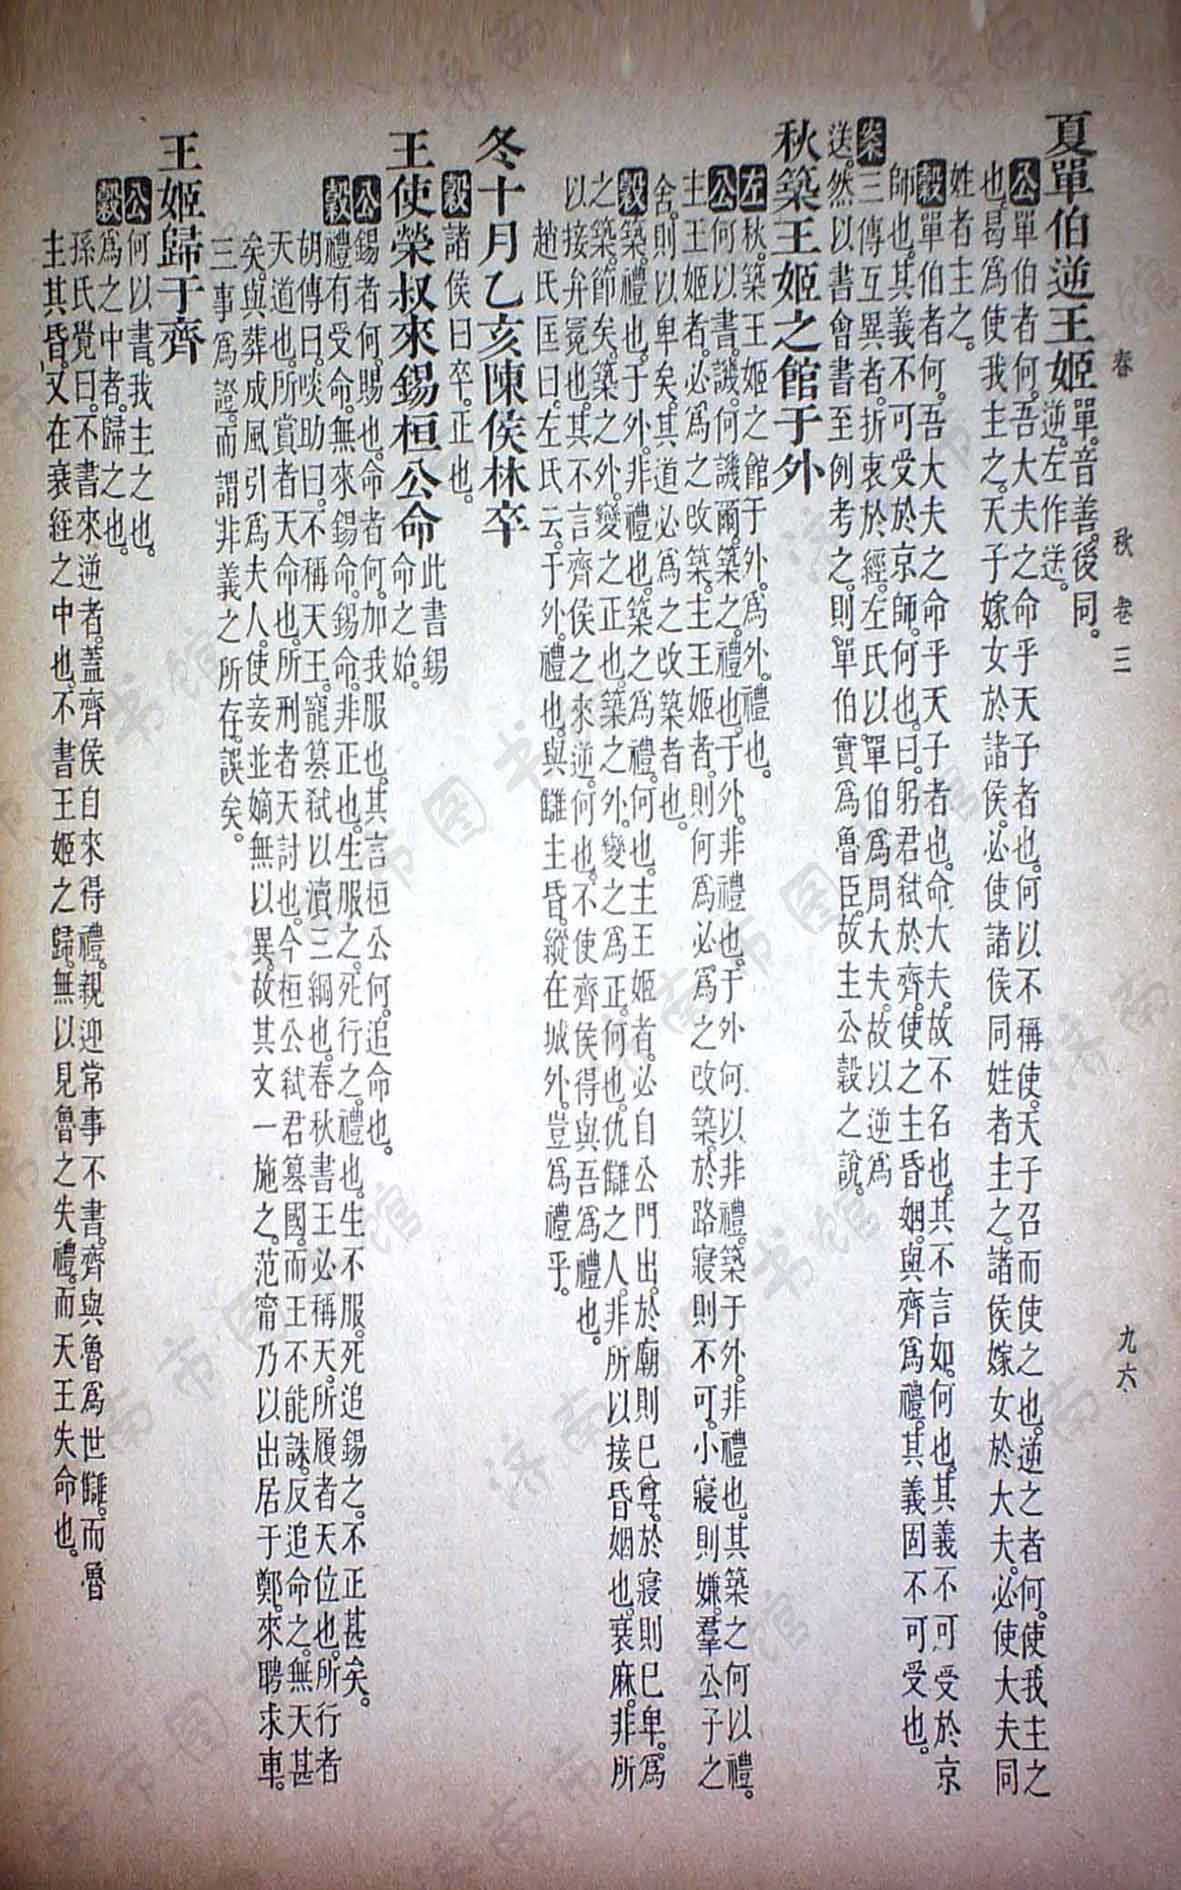 春 秋 卷三 九六
夏單伯逆王姬單。音善。後同。逆。左作送。
公單伯者何。吾大夫之命乎天子者也。何以不稱使。天子召而使之也。逆之者何。使我主之
也。曷爲使我主之。天子嫁女於諸侯。必使諸侯同姓者主之。諸侯嫁女於大夫。必使大夫同
姓者主之。
穀單伯者何。吾大夫之命乎天子者也。命大夫。故不名也。其不言如。何也。其義不可受於京
師也。其義不可受於京師。何也。曰。躬君弒於齊。使之主昏姻。與齊爲禮。其義固不可受也。
案三傳互異者。折衷於經。左氏以單伯爲周大夫。故以逆爲
送。然以書會書至例考之。則單伯實爲魯臣。故主公穀之說。
秋築王姬之館于外
左秋。築王姬之館于外。爲外。禮也。
公何以書。譏。何譏爾。築之。禮也。于外。非禮也。于外何以非禮。築于外。非禮也。其築之何以禮。
主王姬者。必爲之改築。主王姬者。則何爲必爲之改築。於路寢則不可。小寢則嫌。羣公子之
舍。則以卑矣。其道必爲之改築者也。
穀築。禮也。于外。非禮也。築之爲禮。何也。主王姬者。必自公門出。於廟則已尊。於寢則已卑。爲
之築。節矣。築之外。變之正也。築之外。變之爲正。何也。仇讎之人。非所以接昏姻也。衰麻。非所
以接弁冕也。其不言齊侯之來逆。何也。不使齊侯得與吾爲禮也。
趙氏匡曰。左氏云。于外。禮也。與讎主昏。縱在城外。豈爲禮乎。
冬十月乙亥陳侯林卒
穀諸侯日卒。正也。
王使榮叔來錫桓公命此書錫命之始。
公錫者何。賜也。命者何。加我服也。其言桓公何。追命也。
穀禮有受命。無來錫命。錫命。非正也。生服之。死行之。禮也。生不服。死追錫之。不正甚矣。
胡傳曰。啖助曰。不稱天王。寵篡弒以瀆三綱也。春秋書王必稱天。所履者天位也。所行者
天道也。所賞者天命也。所刑者天討也。今桓公弒君篡國。而王不能誅。反追命之。無天甚
矣。與葬成風引爲夫人。使妾並嫡無以異。故其文一施之。范甯乃以出居于鄭。來聘求車。
三事爲證。而謂非義之所存。誤矣。
王姬歸于齊
公何以書。我主之也。
穀爲之中者。歸之也。
孫氏覺曰。不書來逆者。蓋齊侯自來得禮。親迎常事不書。齊與魯爲世讎。而魯
主其昏。又在衰絰之中也。不書王姬之歸。無以見魯之失禮。而天王失命也。